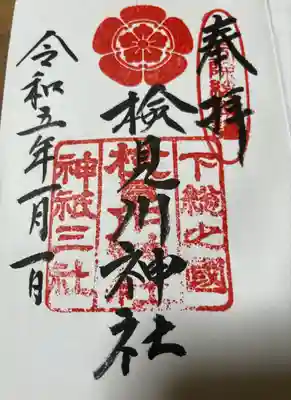 奉拝
下総之國
検見川神社
神社三社
令和五年一月一日